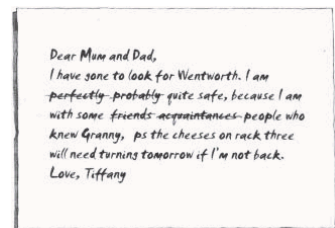 Dear Mum and Dad,
I have gone to look for Wentworth. I am
perfectly probably quite safe, because I am
with some friends acquaintances people who
knew Granny, ps the cheeses on rack three
will need turning tomorrow if I'm not back.
Love, Tiffany